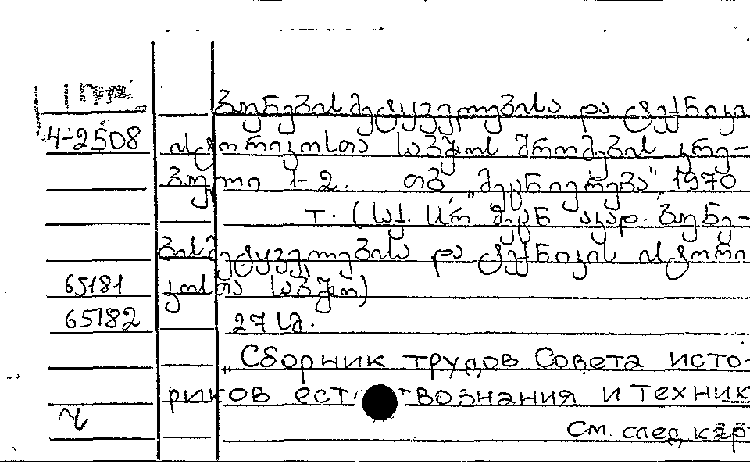 4-2508
ბუნებისმეტყველების და ტექნიკი
ისტორიკოსთა საბჭოს შრომების კრე-
ბული 1-2. თბ „მეცნიერება“ 1970
т. (საქ. სსრ მეცნ აკად. ბუნე-
ბისმეტყველების და ტექნიკის ისტორი
65181 კოსთა საბჭო)
65182 27 სმ.
„Сборник трудов Совета исто-
риков ест твознания и техник
См. след карт